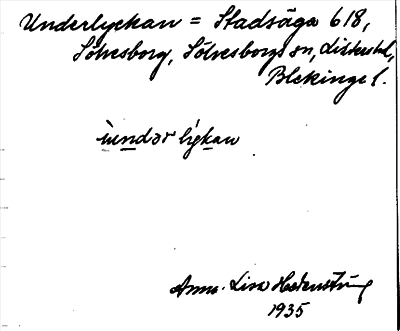 Underlyckan = Stadsäga 618,
Sölvesborg, Sölvesborgs sn, Listers hd,
Blekinge l.
ùndər lýkan
Anna-Lisa Hedenstång
1935